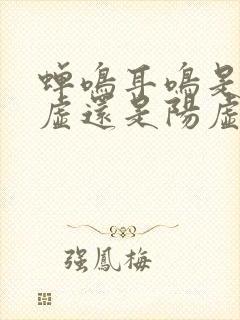 蟬鳴耳鳴是
虛還是陽虛
强鳳梅